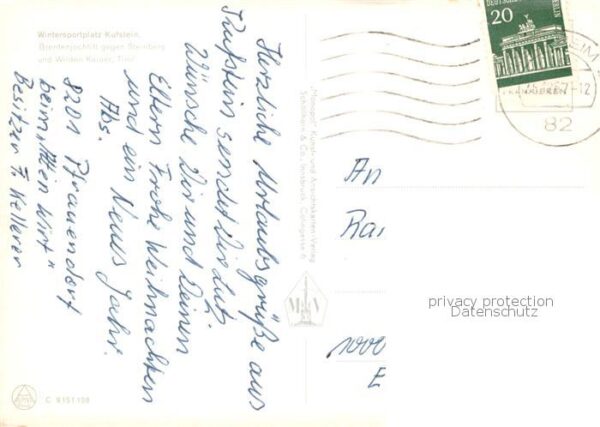 Wintersportplatz Kufstein,
Brentenjochlift gegen Steinberg
und Wilden Kaiser, Tirol
Herzliche Urlaubsgrüße aus
Kufstein sendet Dir Lutz
Wünsche Dir und Deinen
Eltern Frohe Weihnachten
und ein Neues Jahr.
Abs.
8201 Pfraundorf
beim Alten Wirt"
Besitzer F. Kellerer
C 9151 108
"Monopol" Kunst- und Ansichtskarten-Verlag
Schöllhorn & Co., Innsbruck,
DEUTSCHE
BERLIN
20
HEIM
-12
82
An
Ra
1000
privacy protection
Datenschutz